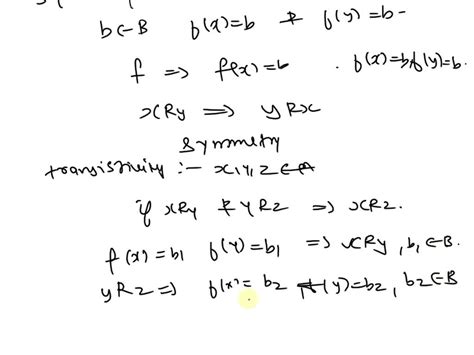 b∈B f(x)=b & f(y)=b-
f => f(x)=b . f(x)=b,f(y)=b.
xRy => yRx
symmetry
transistivity :- x,y,z∈A
if xRy & yRz => xRz.
f(x)=b₁ f(y)=b₁ => xRy, b₁∈B.
yRz => f(x)=b₂ f(y)=b₂, b₂∈B